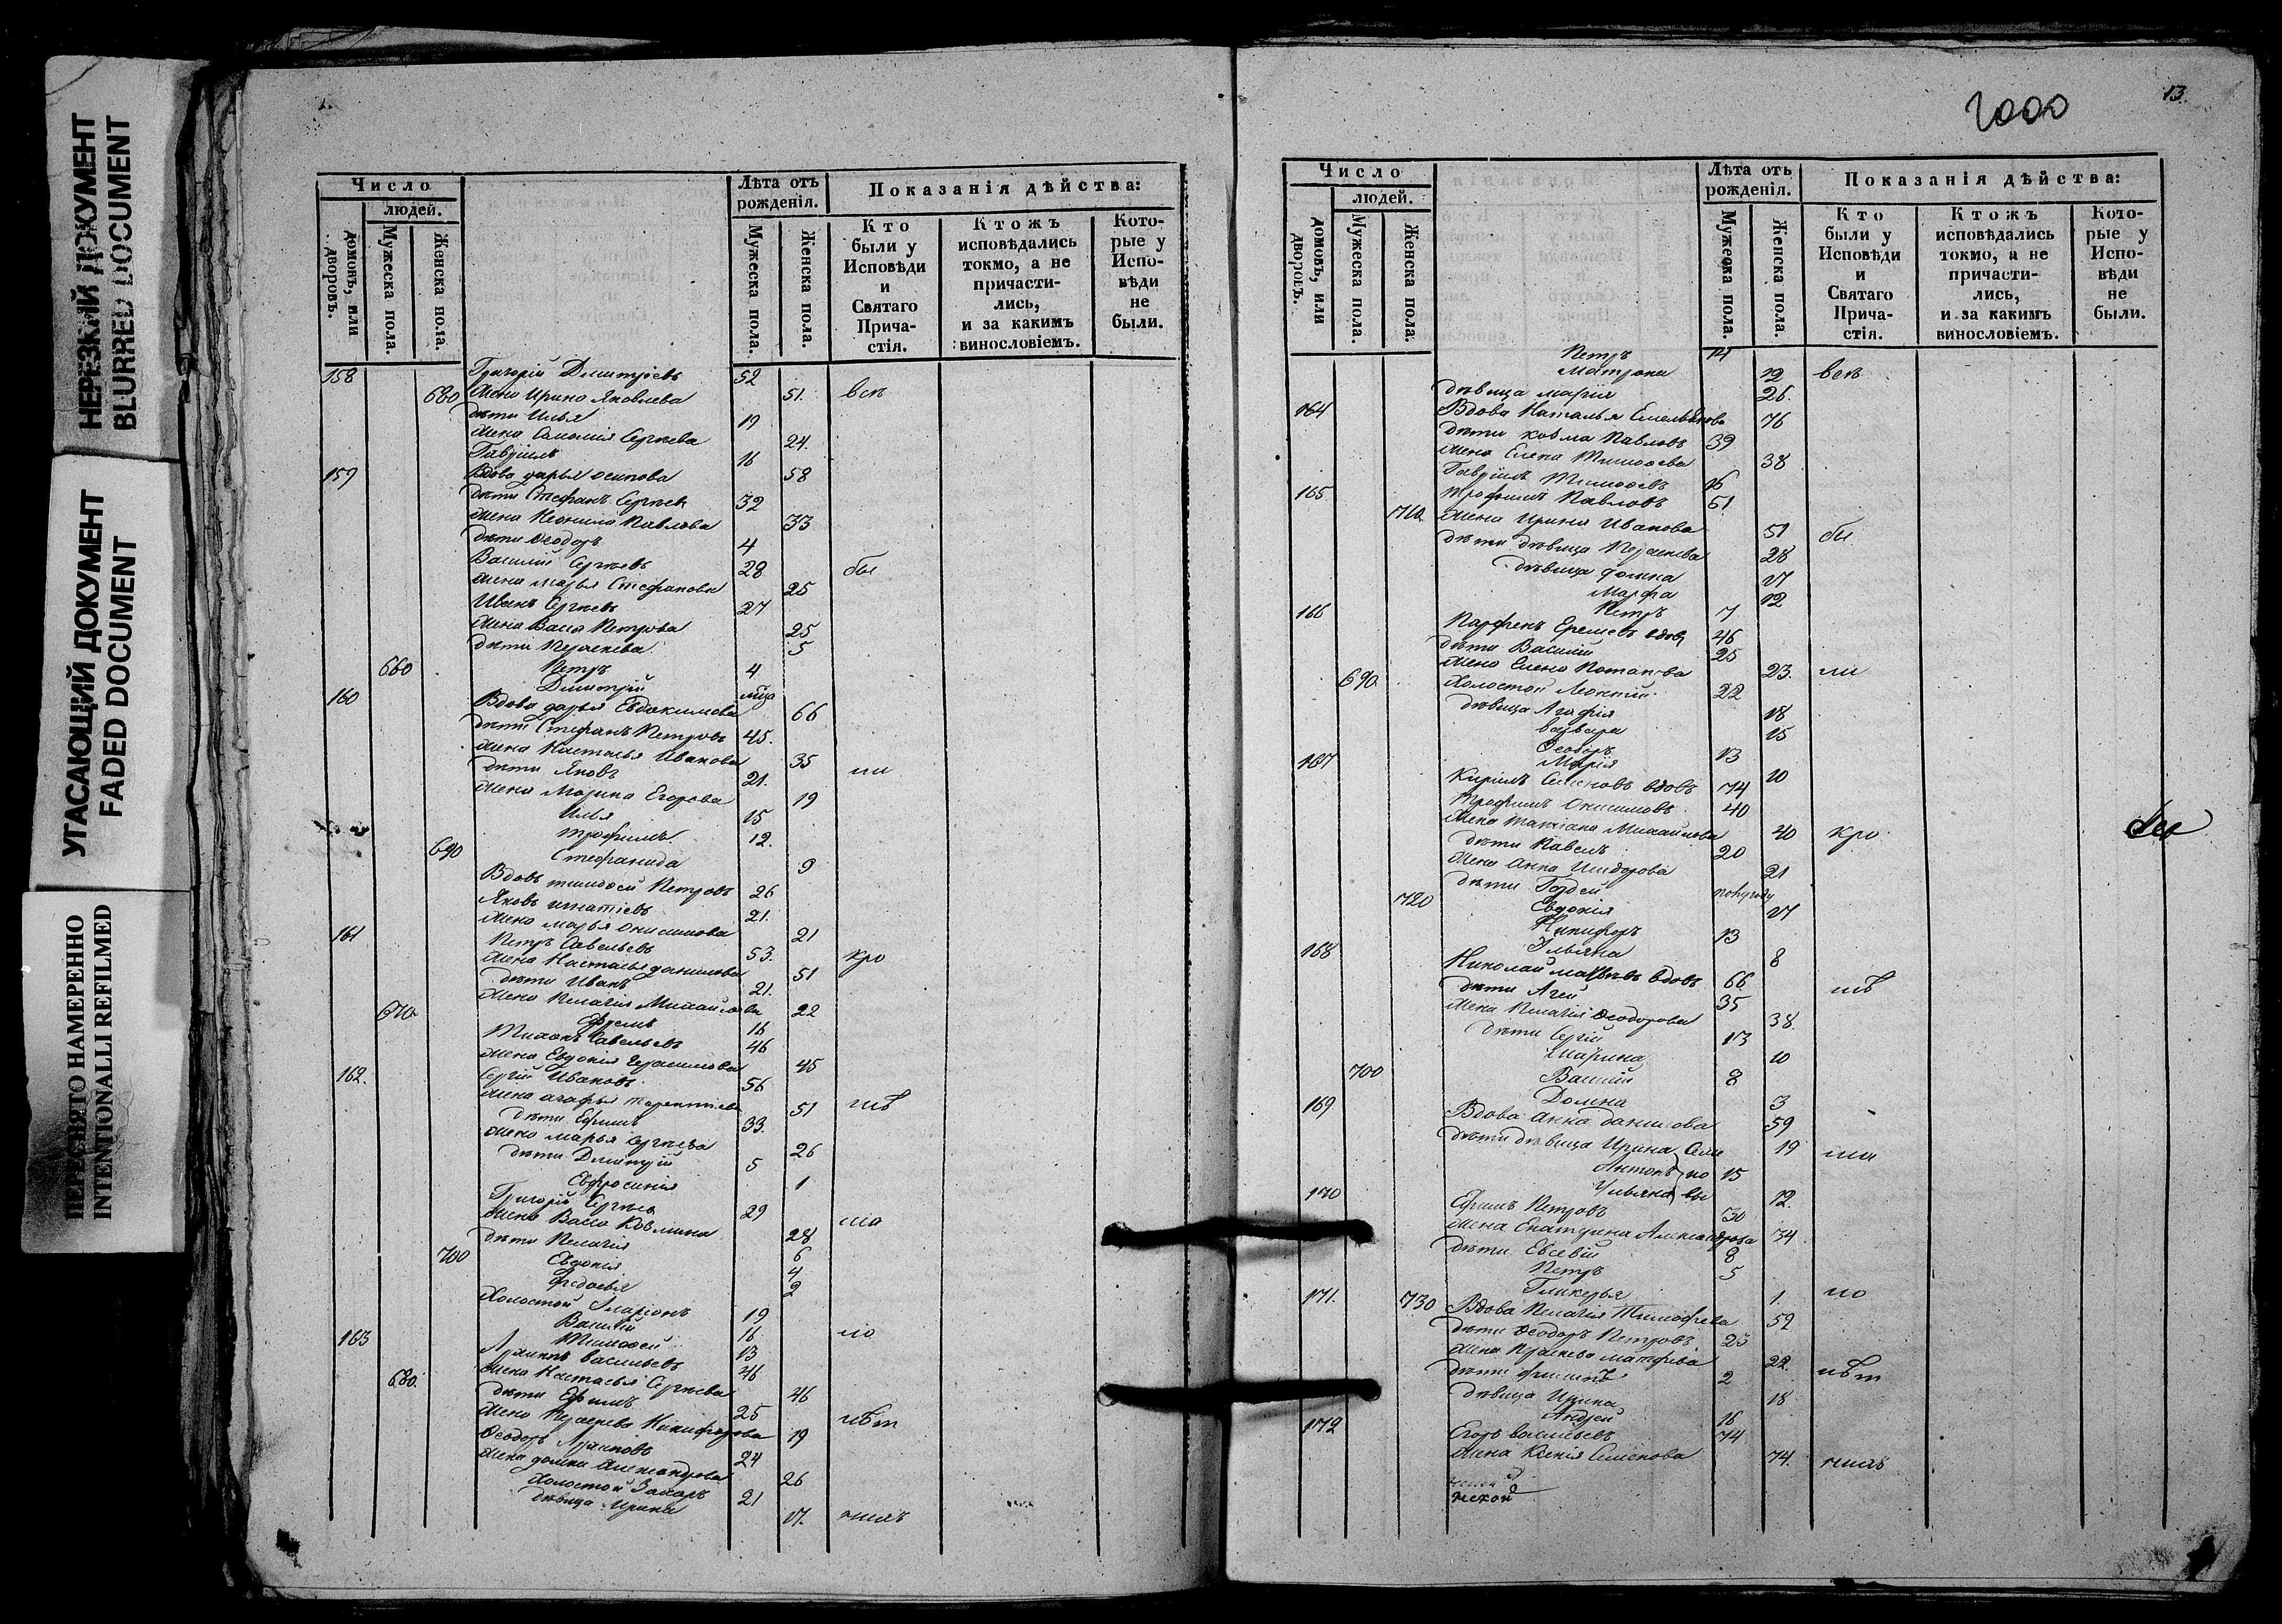 НЕРЕЗКИЙ ДОКУМЕНТ
BLURRED DOCUMENT
УГАСАЮЩИЙ ДОКУМЕНТ
FADED DOCUMENT
ПЕРЕСНЯТО НАМЕРЕННО
INTENTIONALLI REFILMED
Число
людей.
домовъ, или дворовъ.
Мужеска пола.
Женска пола.
Лѣта отъ рожденія.
Мужеска пола.
Женска пола.
Показанія дѣйства:
Кто были у Исповѣди и Святаго Прича-стія.
Ктожъ исповѣдались токмо, а не причасти-лись, и за какимъ винословіемъ.
Кото-рые у Испо-вѣди не были.
158 Григорій Дмитріевъ 52
680 жена Ирина Яковлева 51 всѣ
дѣти Илья 19
жена Соломія Сергѣева 24.
Гавріилъ 16
159 Вдова дарья осипова 58
дѣти Стефанъ Сергѣевъ 32
жена Неонила Павлова 33
дѣти Ѳеодоръ 4
Василій Сергѣевъ 28 бы
жена марья Стефанова 25
Иванъ Сергѣевъ 27
жена Васса Петрова 25
дѣти Параскева 5
660 Петръ 4
Дмитрій
160 Вдова дарья Евдокимова 66
дѣти Стефанъ Петровъ 45.
жена Настасья Иванова 35
дѣти Яковъ 21. ли
жена Марина Егорова 19
Илья 15
трофимъ 12.
690 Стефанида 9
Вдовъ тимофей Петровъ 26
Яковъ игнатіевъ 21.
жена марья онисимова 21
161 Петръ Савельевъ 53.
жена Настасья данилова 51 кро
дѣти Иванъ 21.
жена Пелагія Михайлова 22
670 Ефремъ 16
Тихонъ Савельевъ 46
жена Евдокія Герасимова 45
162. Сергій Ивановъ 56
жена агафья терентіева 51 шѣ
дѣти Ефимъ 33.
жена марья Сергѣева 26
дѣти Дмитрій 5
Евфросинія 1
Григорій Сергѣевъ 29
жена Васса Козмина 28 ма
дѣти Пелагія 6
700 Евдокія 4
Ѳедосья 2
Холостой Иларіонъ 19
Василій 16 ло
Тимофей 13
163 Архипъ васильевъ 46
680. жена Настасья Сергѣева 46
дѣти Ефимъ 25
жена Параскева Никифорова 19 лѣт
Ѳеодоръ Архиповъ 24
жена домна Александрова 26
Холостой Захаръ 21
дѣвица Ирина 17. нихъ
13.
1000
Число
людей.
домовъ, или дворовъ.
Мужеска пола.
Женска пола.
Лѣта отъ рожденія.
Мужеска пола.
Женска пола.
Показанія дѣйства:
Кто были у Исповѣди и Святаго Прича-стія.
Ктожъ исповѣдались токмо, а не причасти-лись, и за какимъ винословіемъ.
Кото-рые у Испо-вѣди не были.
Петръ 14
Матрона 12 всѣ
дѣвица Марія 26.
164 Вдова Наталья Емельянова 76
дѣти козма Павловъ 39
жена Елена Тимофеева 38
Гавріилъ Тимофеевъ 16
165 трофимъ Павловъ 51
710 жена Ирина Иванова 51 бы
дѣти дѣвица Параскева 28
дѣвица домна 17
Марфа 12
Петръ 7
166 Парфенъ Еремеевъ вдовъ 46
дѣти Василій 25
жена Елена Потапова 23. ли
690 Холостой Леонтій 22
дѣвица Агафія 18
варвара 15
Ѳеодоръ 13
Марія 10
167 Кирилъ Семеновъ вдовъ 74
Трофимъ Онисимовъ 40
жена татіана Михайлова 40 кро
дѣти Павелъ 20
жена анна Исидорова 21
дѣти Гордей полугоду
720 Евдокія 17
Никифоръ 13
Ульяна 8
168 Николай матвѣевъ вдовъ 66 шѣ
дѣти Агей 35
жена Пелагія Ѳеодорова 38.
дѣти Сергій 13
Марина 10
700 Василій 8
Домна 3
169 Вдова анна данилова 59
дѣти дѣвица Ирина Семе 19 ма
Антонъ но 15
Ульяна вы 12.
170 Ефимъ Петровъ 30
жена Екатерина Александрова 34
дѣти Евсевій 8
Петръ 5
Гликерья 1. ло
171. 730 Вдова Пелагія Тимофеева 59
дѣти Ѳеодоръ Петровъ 23
жена Параскева матфеева 22. лѣт
дѣти филипъ 2
дѣвица Ирина 18
Андрей 16
172 Егоръ васильевъ 74
жена Ксенія Семенова 74. нихъ